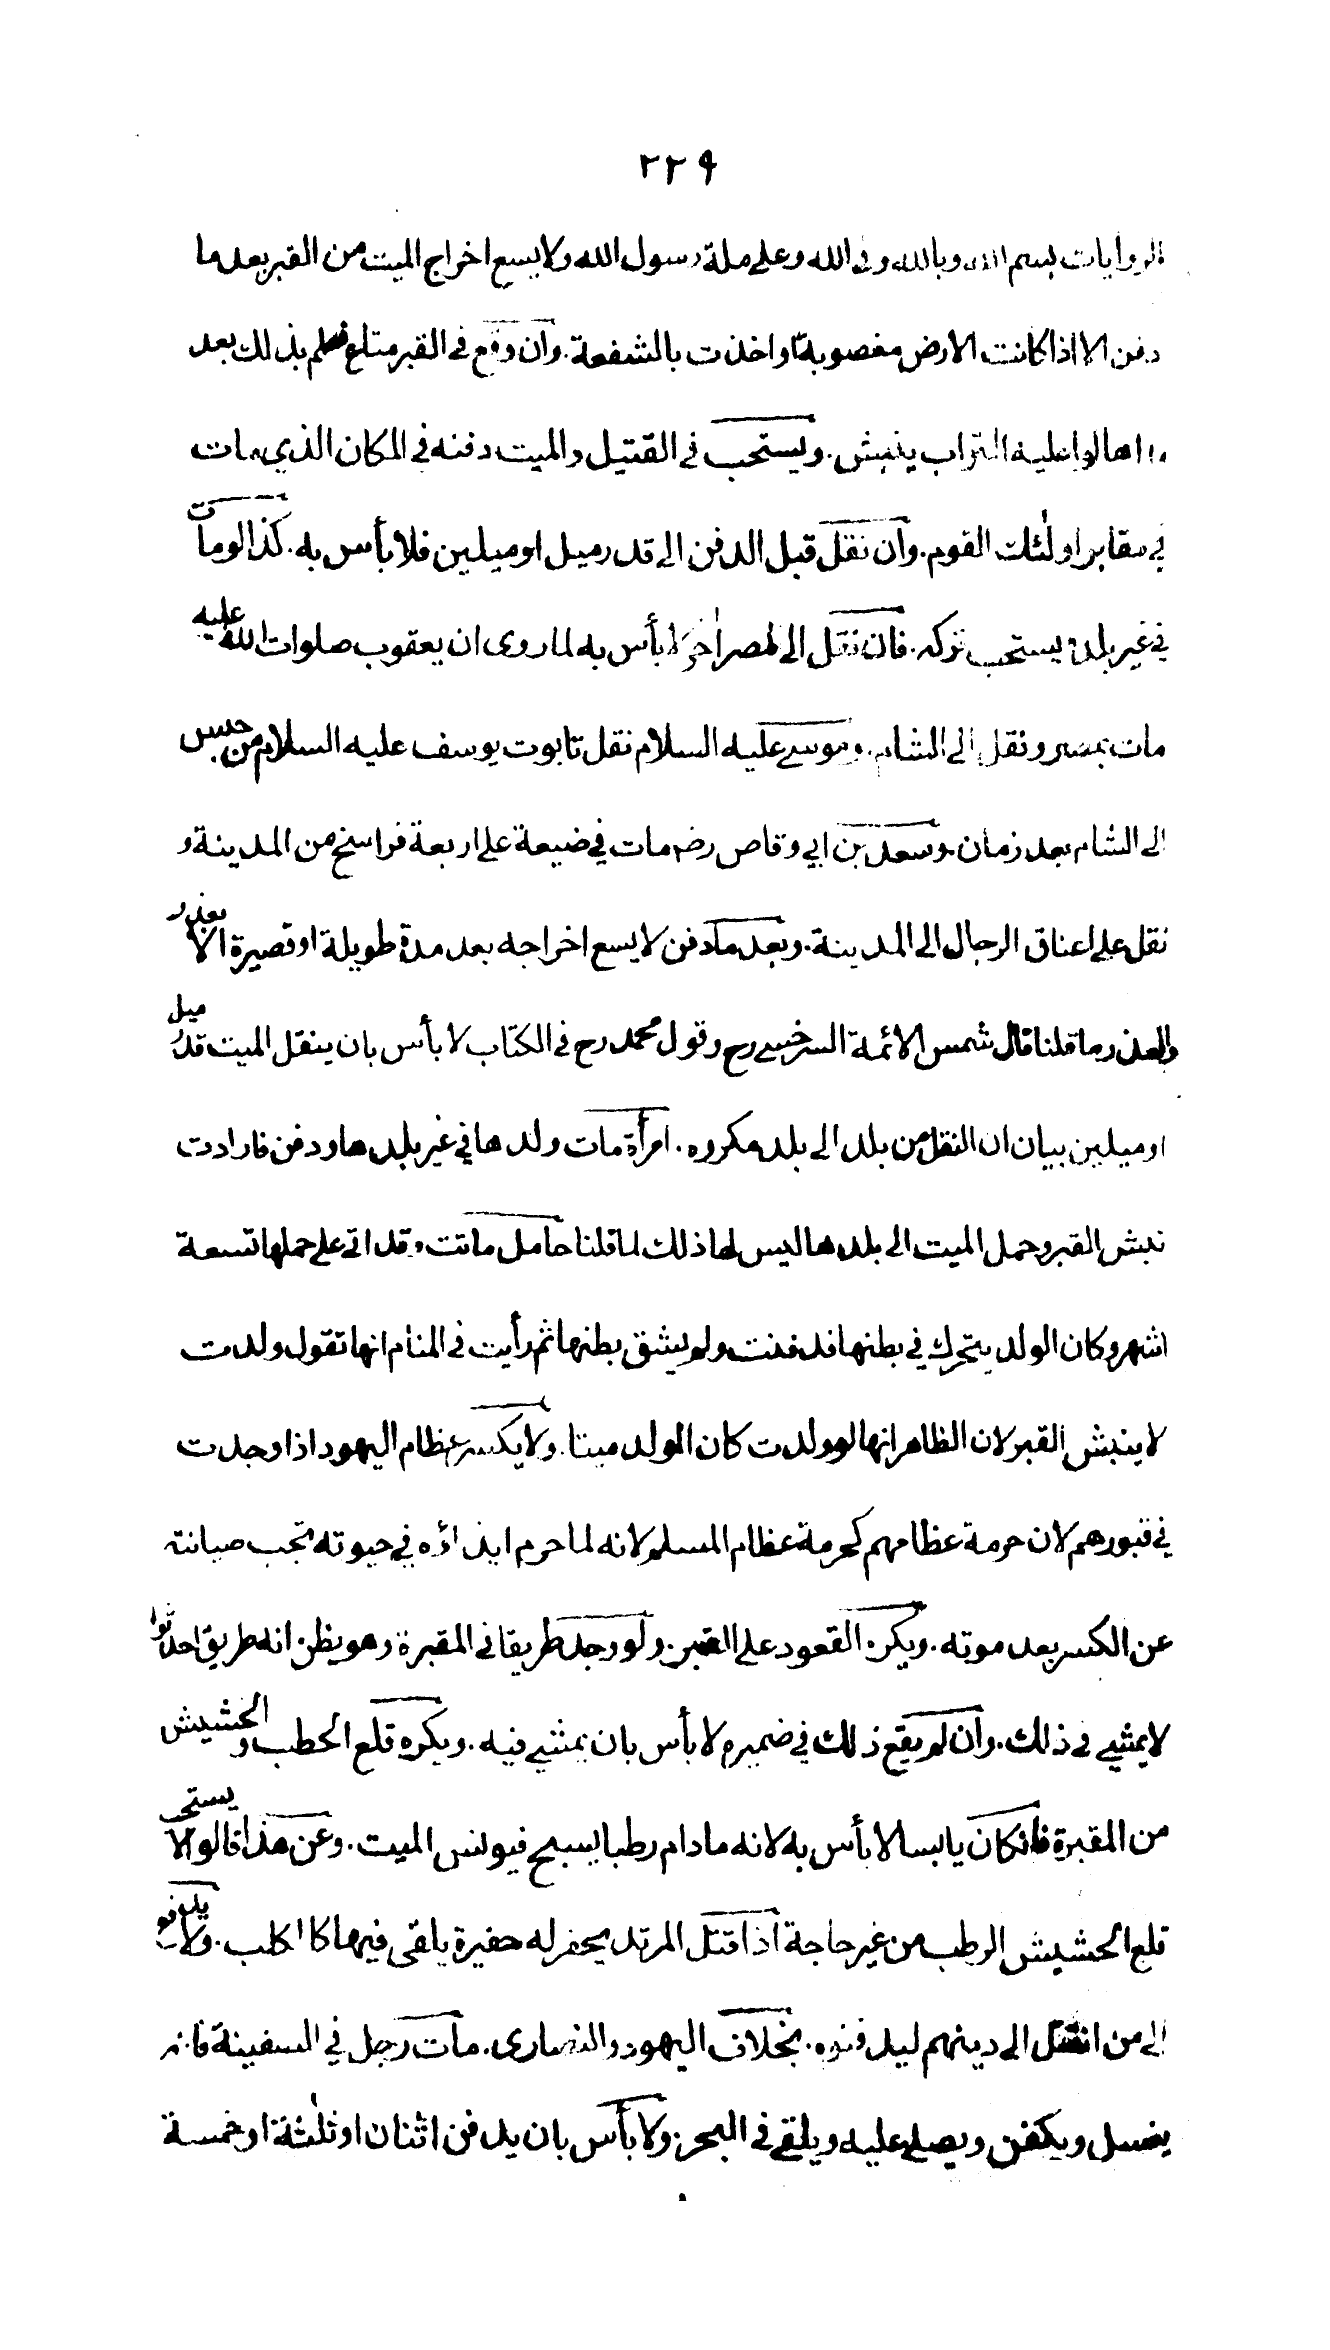 ٢٢٩
الروايات بسم الله وبالله وفى الله وعلى ملة رسول الله ولا يسع اخراج الميت من القبر بعد ما
دفن الا اذا كانت الارض مغصوبة او اخذت بالشفعة. وان وقع فى القبر متاع فعلم بذلك بعد
ما اهالوا عليه التراب ينبش. ويستحب فى القتيل والميت دفنه فى المكان الذي مات
فى مقابر اولئك القوم. وان نقل قبل الدفن الى قدر ميل او ميلين فلا بأس به. كذا لو مات
فى غير بلده يستحب تركه. فان نقل الى مصر اخر لا بأس به لما روى ان يعقوب صلوات الله عليه
مات بمصر ونقل الى الشام. وموسى عليه السلام نقل تابوت يوسف عليه السلام من
الى الشام بعد زمان. وسعد بن ابي وقاص رضه مات في ضيعة على اربعة فراسخ من المدينة و
نقل على اعناق الرجال الى المدينة. وبعد ما دفن لا يسع اخراجه بعد مدة طويلة او قصيرة الا بعذر
والعذر ما قلنا قال شمس الائمة السرخسى رح وقول محمد رح فى الكتاب لا بأس بان ينقل الميت قدر ميل
او ميلين بيان ان النقل من بلد الى بلد مكروه. امرأة مات ولدها في غير بلدها ودفن فارادت
نبش القبر وحمل الميت الى بلدها ليس لها ذلك لما قلنا حامل ماتت وقد اتى على حملها تسعة
اشهر وكان الولد يتحرك في بطنها فدفنت ولم يشق بطنها ثم رأيت فى المنام انها تقول ولدت
لا ينبش القبر لان الظاهر انها لو ولدت كان المولد ميتا. ولا يكسر عظام اليهود اذا وجدت
في قبورهم لان حرمة عظامهم كحرمة عظام المسلم لانه لما حرم ايذاؤه في حيوته تجب صيانته
عن الكسر بعد موته. ويكره القعود على القبر. ولو وجد طريقا فى المقبرة وهو يظن انه طريق احدثوا
لا يمشي فى ذلك. وان لم يقع ذلك في ضميره لا بأس بان يمشي فيه. ويكره قلع الحطب والحشيش
من المقبرة فان كان يابسا لا بأس به لانه ما دام رطبا يسبح فيونس الميت. وعن هذا قالوا لا يستحب
قلع الحشيش الرطب من غير حاجة اذا قتل المرتد يحفر له حفيرة يلقى فيها كالكلب. ولا يدفع
الى من انتقل الى دينهم ليدفنوه. بخلاف اليهود والنصارى. مات رجل في السفينة فانه
يغسل ويكفن ويصلى عليه ويلقى فى البحر. ولا بأس بان يدفن اثنان او ثلثة او خمسة